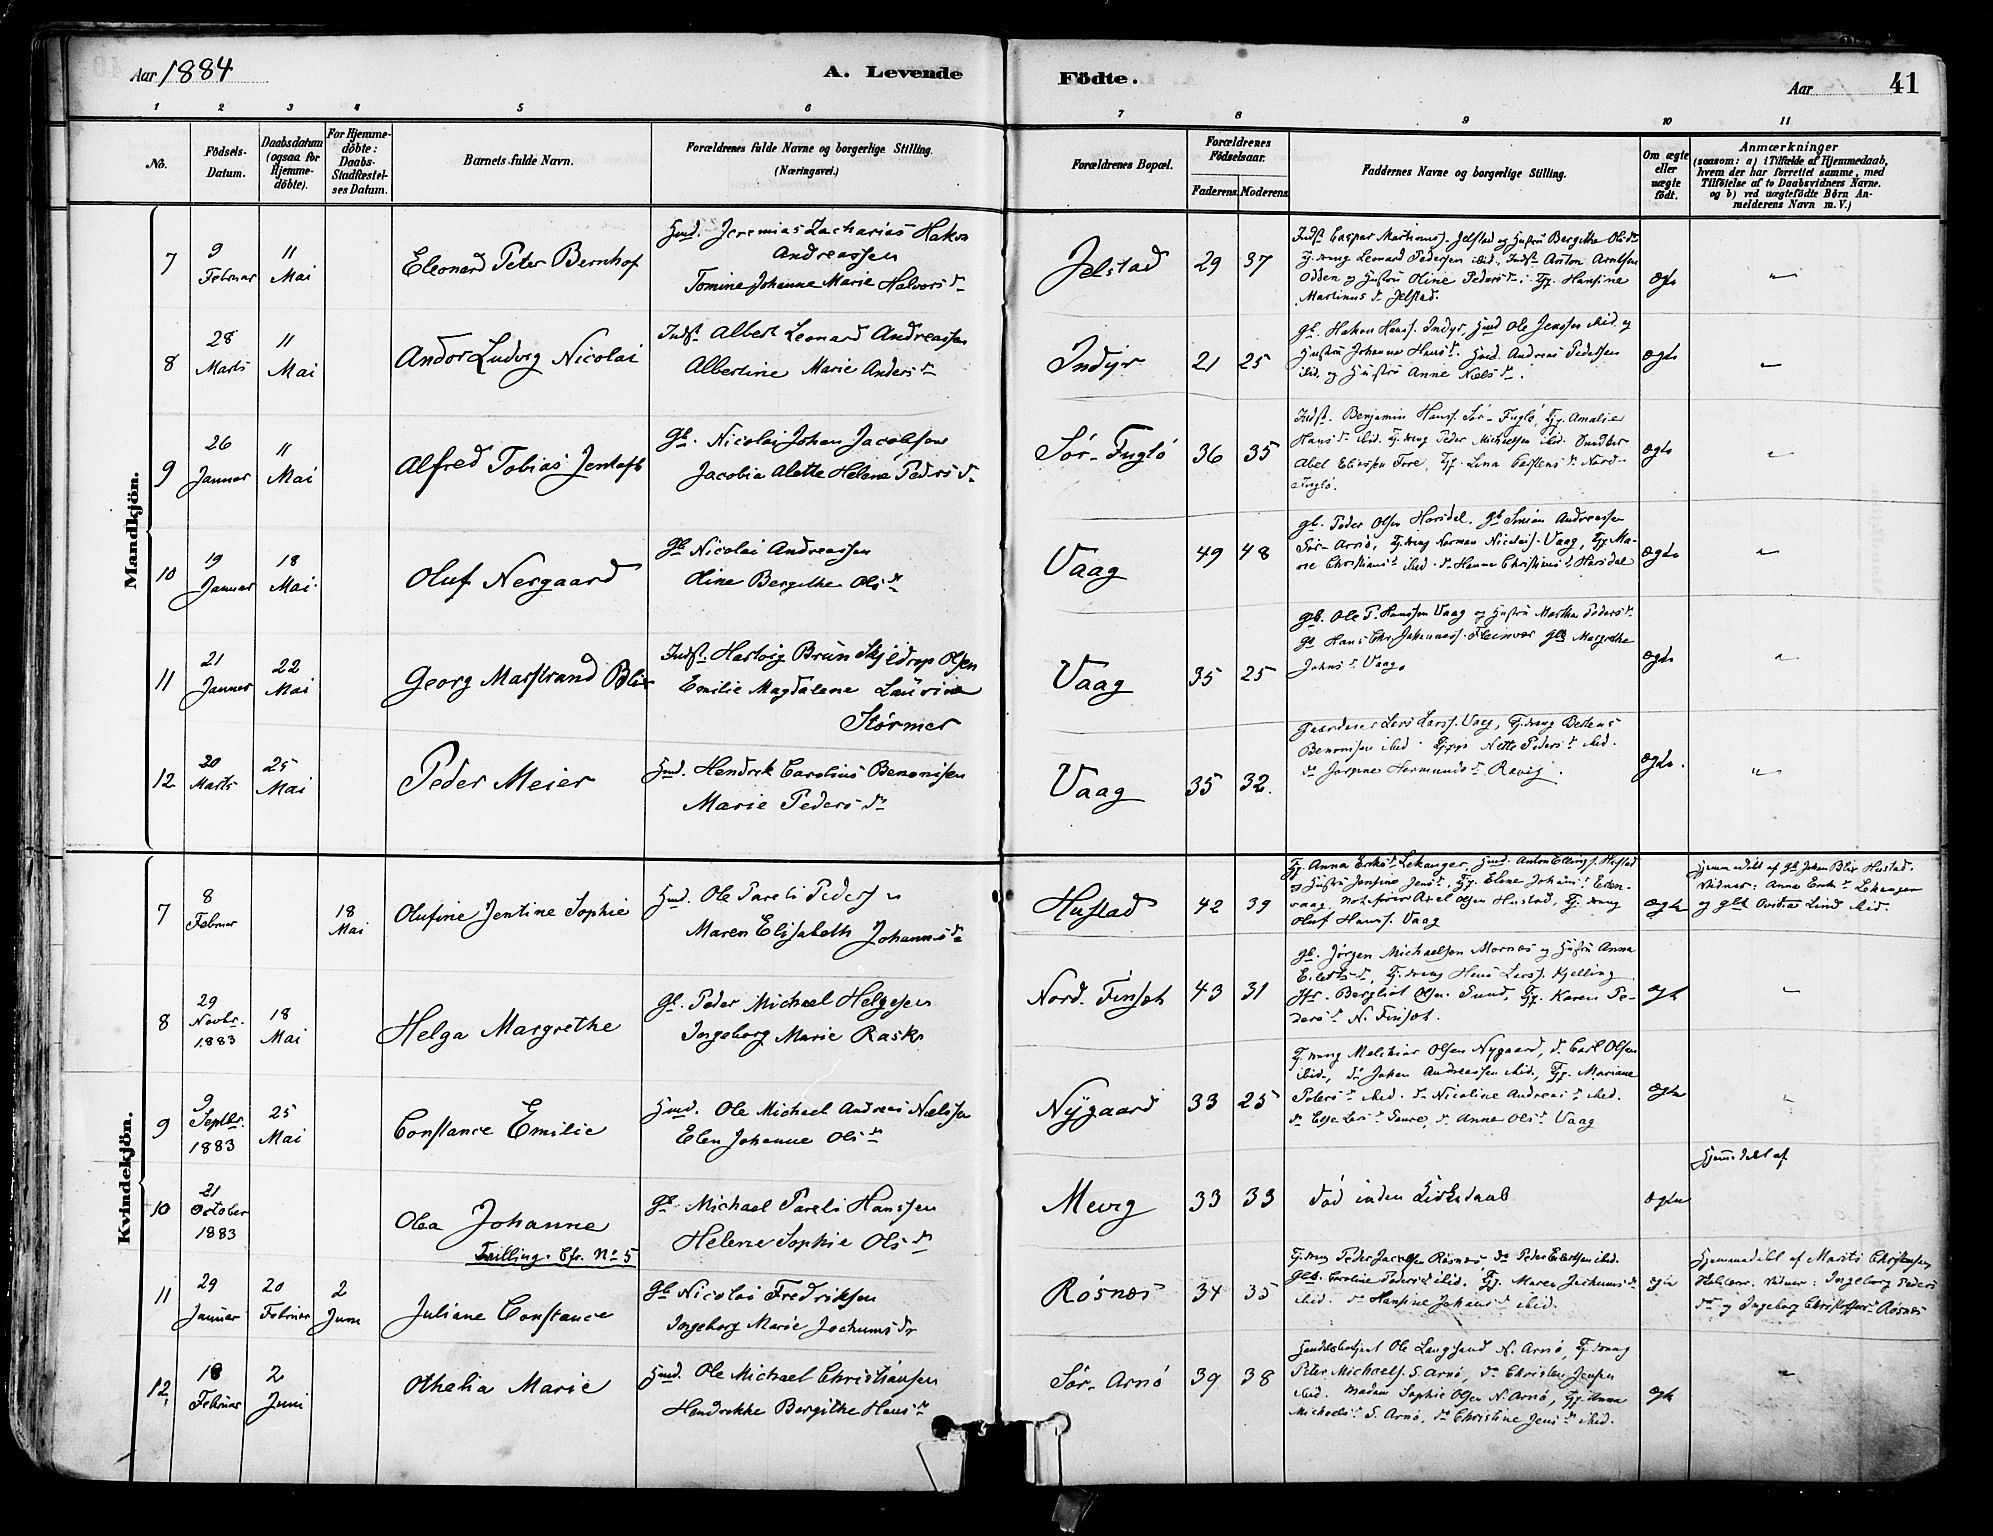 Aar 1884
A. Levende
Födte.
Aar
41
1 2 3 4 5 6 7 8 9 10 11
No.
Födsels-Datum.
Daabsdatum (ogsaa for Hjemme-döbte).
For Hjemme-döbte: Daabs-Stadfæstel-ses Datum.
Barnets fulde Navn.
Forældrenes fulde Navne og borgerlige Stilling. (Næringsvei.)
Forældrenes Bopæl.
Forældrenes Födselsaar.
Faderens Moderens
Faddernes Navne og borgerlige Stilling.
Om ægte eller uægte födt.
Anmærkninger
(saasom: a) i Tilfælde af Hjemmedaab,
hvem der har forrettet samme, med
Tilföielse af to Daabsvidners Navne,
og b) ved uægtefödte Börn An-
melderens Navn m. V.)
Mandkjön.
7
9 Februar
11 Mai
Eleonard Peter Bernhof
Hmd. Jeremias Zacharias Hakon
Andreassen
Tomine Johanne Marie Halvors dr
Jelstad
29 37
Indst Caspar Martinuss. Jelstad og Hustru Bergithe Ols dr
Tj.dreng Leonard Pedersen ibid, Indst Anton Arntsen
Odden og Hustru Oline Peders dr, Tj. Hansine
Martinus dr Jelstad.
ægte
"
8
28 Marts
11 Mai
Andor Ludvig Nicolai
Indst Albert Leonard Andreassen
Albertine Marie Anders dr
Indyr
21 25
Gb. Hakon Hanss. Indyr, Hmd Ole Jenssen ibid og
Hustru Johanna Hans dr. Hmd. Andreas Pedersen
ibid. og Hustru Anne Niels dr.
ægte
"
9
26 Januar
11 Mai
Alfred Tobias Jentoft
Gb. Nicolai Johan Jacobsen
Jacobia Alette Helene Peders dr
Sør-Fuglø
36 35
Indst. Benjamin Hanss. Sør-Fuglø, Tj. Amalie
Hans dr ibid. Tj.dreng Peder Michaelsen ibid.
Abel Eliassen Fore, Tj. Lina Carstens dr Nord-
Fuglø.
ægte
"
10
19 Januar
18 Mai
Oluf Nergaard
Gb Nicolai Andreassen
Oline Bergithe Ols dr
Vaag
49 48
Gb. Peder Olsen Horsdal. Gb Simon Andreassen
Sør-Arnø, Tj.dreng Norman Nicolais. Vaag, Tj. Ma-
rie Christians dr ibid. do Hanna Christians dr Horsdal
ægte
"
11
21 Januar
22 Mai
Georg Marstrand Blix
Indst. Hartvig Brun Skjeldrop Olsen
Emilie Magdalene Laurine
Størmer
Vaag
35 25
Gb. Ole P. Hanssen Vaag og Hustru Martha Peders dr
Gb Hans Chr. Johanness. Fleinvær Gbk Margrethe
Johns dr Vaag.
ægte
"
12
20 Marts
25 Mai
Peder Meier
Hmd. Hendrik Carolius Benonisen
Marie Peders dr
Vaag
35 32.
Gaardmand Lars Larss. Vaag, Tj.dreng
Benonisen ibid. Tj.pige Nette Peders dr ibid.
do Jørgine Hermunds dr Røvig.
ægte.
"
Kvindekjön.
7
8 Februar
18 Mai
Olufine Jentine Sophie
Hmd. Ole Pareli Pedersen
Maren Elisabeth Johanns dr
Hustad
42 39
Tj. Anna Eriks dr Lekanger, Hmd. Anton Ellings. Hustad
og Hustru Jensine Jens dr, Tj. Eline Johans dr
vaag, Axel Olsen Hustad, Tj. dreng
Oluf Hanss. Vaag
ægte
Hjemmedøbt af Gb Johan Blix Hustad.
Vidner: Anna Eriks dr Lekanger
og Gbk Ovidia Lind ibid.
8
29 Novbr. 1883
18 Mai
Helga Margrethe
Gb. Peder Michael Helgesen
Ingeborg Marie Rask
Nord. Finset
43 31
Gb. Jørgen Michaelsen Mornes og Hustru Anna
Eilerts dr, Tj.dreng Hans Larss. Kjelling
Bergliot Olsen Sund, Tj. Karen Pe-
ders dr N. Finset.
ægte
"
9
9 Septbr. 1883
25 Mai
Constance Emilie
Hmd. Ole Michael Andreas Nielssen
Elen Johanne Ols dr
Nygaard
33 25
Tj. dreng Melchior Olsen Nygaard, do Carl Olsen
ibid., do Johan Andreassen ibid, Tj. Mariane
Peters dr ibid. do Nicoline Andreas dr ibid.
do Else Lars dr, do Anne Ols dr Vaag
ægte
"
10
21 October 1883
Olea Johanne
Tvilling. Cfr. No 5
Gb Michael Pareli Hanssen
Helene Sophie Ols dr
Mevig
33 33
død inden Kirkedaab
ægte
Hjemmedøbt af
11
29 Januar
20 Februar
2 Juni
Juliane Constance
Gb. Nicolai Fredriksen
Ingeborg Marie Jochums dr
Røsnes
34 35
Tj.dreng Peder Jacobsen Røsnes, do Peder Eilertsen ibid.
Gbk. Caroline Peders dr ibid. Tj. Maren Jochums dr
ibid. do Hansine Johans dr ibid.
ægte
Hjemmedøbt af Marith Christensen
Vidner: Ingeborg Peders
dr og Ingeborg Christoffers dr Røsnes
12
18 Februar
2 Juni
Othelia Marie
Hmd. Ole Michael Christiansen
Hendrikke Bergithe Hans dr
Sør-Arnø
39 38
Handelsbetjent Ole Langseund N. Arnø, Tj.dreng
Peter Michaels. S. Arnø, do Christen Jensen
ibid. Madam Sophie Olsen N. Arnø, Tj. Anna
Michaels dr S. Arnø, do Christine Jens dr ibid.
ægte
"